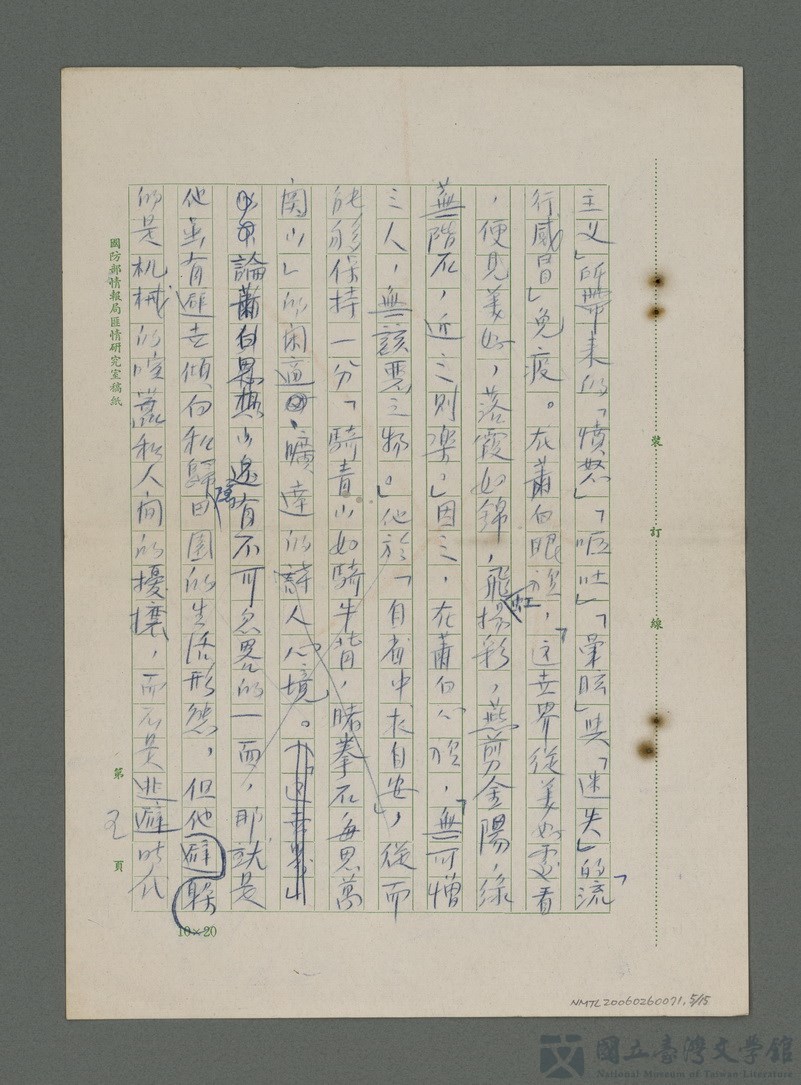 主义」所帶来的「憤怒」「嘔吐」「暈眩」與「迷失」的「流
行感冒」免疫。在蕭白眼裡，「这世界從美好處看
，便見美好，落霞如錦，飛虹揚彩，燕剪金陽，綠
蕪階石，近之則樂。」因之，在蕭白心裡，「無可憎
之人，無該惡之物。」他於「自省中求自安」，從而
能够保持一分「騎青山如騎牛背，睹拳石每思萬
関山」的閑適、曠達的詩人心境。
論蕭白思想，还有不可忽畧的一面，那就是
他虽有避世傾向和歸隱田園的生活形態，但他躲避
的是机械的喧囂和人間的擾攘，而不是逃避时代
國防部情報局匪情研究室稿紙
第 五 頁
10×20
裝 訂 線
NMTL20060260071, 5/15
國立臺灣文学館
National Museum of Taiwan Literature